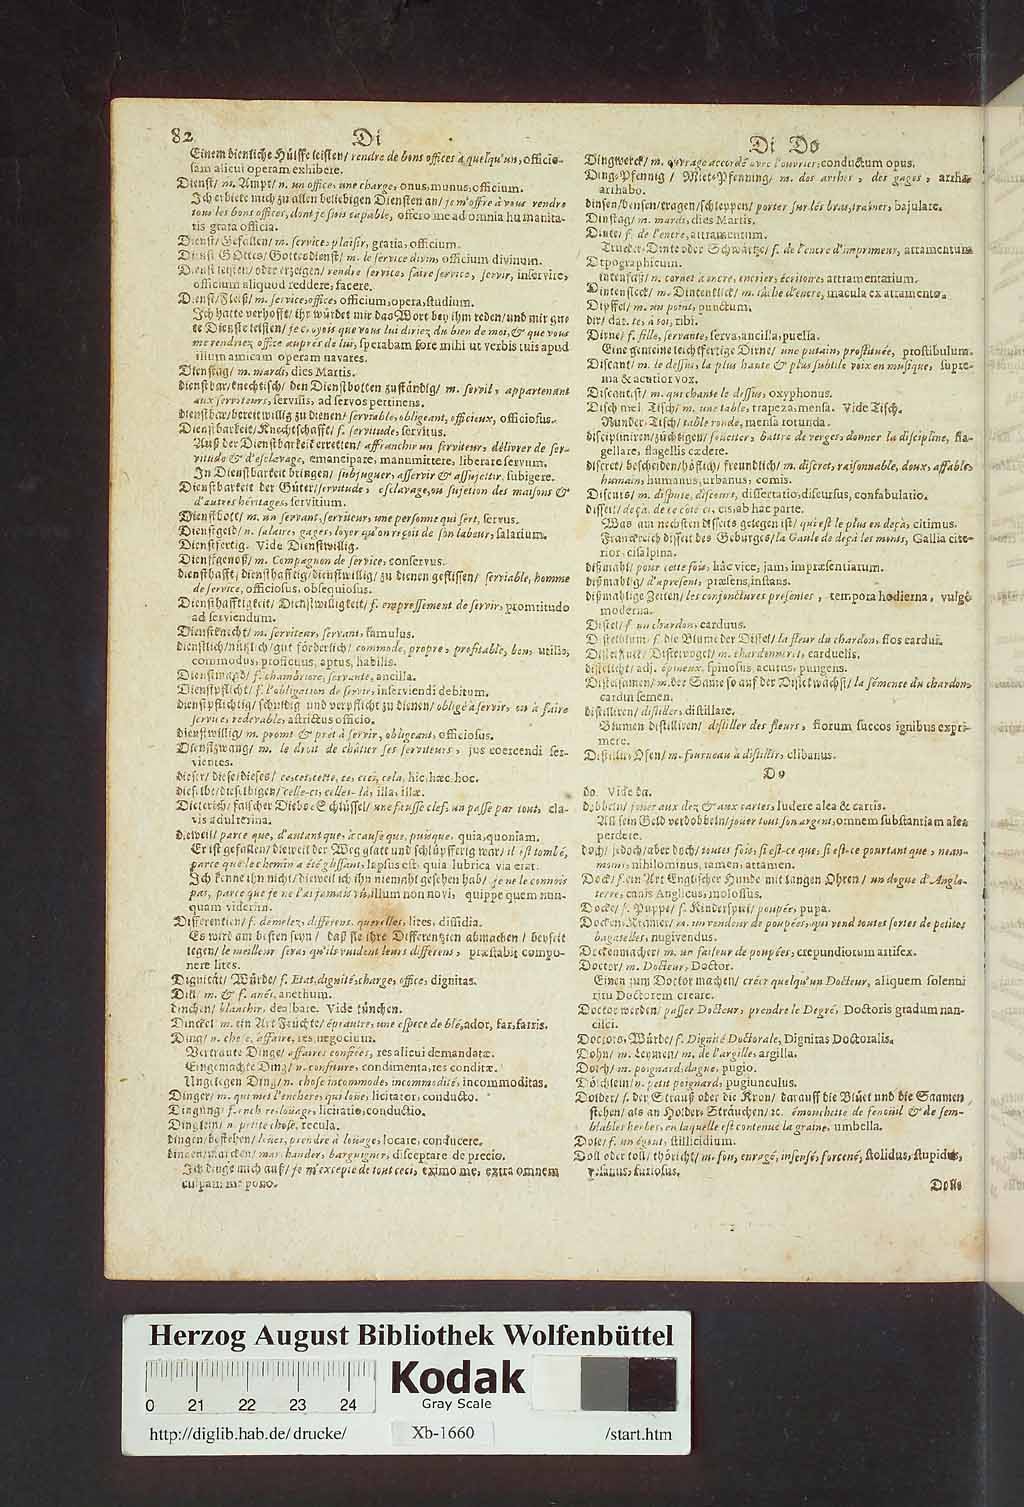 82
Di
Einem dienliche Hülffe leisten/ rendre de bons offices à quelqu'un, officio-
sam alicui operam exhibere.
Dienst/ m. Ampt/ n. un office, une charge, onus, munus, officium.
Ich erbiete mich zu allen beliebigen Diensten an/ je m'offre à vous rendre
tous les bons offices, dont je suis capable, offero me ad omnia humanita-
tis grata officia.
Dienst/ Gefallen/ m. service, plaisir, gratia, officium.
Dienst GOttes/ Gottesdienst/ m. le service divin, officium divinum.
Dienst leisten/ oder erzeigen/ rendre service, faire service, servir, inservire,
officium aliquod reddere, facere.
Dienst/ Fleiß/ m. service, office, officium, opera, studium.
Ich hatte verhofft/ ihr würdet mir das Wort bey ihm reden/ und mir gute
te Dienste leisten/ je croyois que vous lui diriez du bien de moi, & que vous
me rendriez office auprés de lui, sperabam fore mihi ut verbis tuis apud
illum amicam operam navares.
Dienstag/ m. mardi, dies Martis.
dienstbar/ knechtisch/ den Dienstbotten zuständig/ m. servil, appartenant
aux serviteurs, servilis, ad servos pertinens.
dienstbar/ bereitwillig zu dienen/ serviable, obligeant, officieux, officiosus.
Dienstbarkeit/ Knechtschafft/ f. servitude, servitus.
Auß der Dienstbarkeit erretten/ affranchir un serviteur, délivrer de ser-
vitude & d'esclavage, emancipare, manumittere, liberare servum.
In Dienstbarkeit bringen/ subjuguer, asservir & assujettir, subigere.
Dienstbarkeit der Güter/ servitude, esclavage, ou sujetion des maisons &
d'autres héritages, servitium.
Dienstbott/ m. un servant, serviteur, une personne qui sert, servus.
Dienstgeld/ n. salaire, gages, loyer qu'on reçoit de son labeur, salarium.
Dienstfertig. Vide Dienstwillig.
Dienstgenoß/ m. Compagnon de service, conservus.
diensthafft/ diensthafftig/ dienstwillig/ zu dienen geflissen/ serviable, homme
de service, officiosus, obsequiosus.
Diensthafftigkeit/ Dienstwilligkeit/ f. empressement de servir, promtitudo
ad serviendum.
Dienstknecht/ m. serviteur, servant, famulus.
dienstlich/ nützlich/ gut förderlich/ commode, propre, profitable, bon, utilis,
commodus, proficuus, aptus, habilis.
Dienstmagd/ f. chambriere, servante, ancilla.
Dienstpflicht/ f. l'obligation de servir, inserviendi debitum.
dienstpflichtig/ schuldig und verpflicht zu dienen/ obligé à servir, ou à faire
service, redevable, astrictus officio.
dienstwillig/ m. promt & prêt à servir, obligeant, officiosus.
Dienstzwang/ m. le droit de châtier ses serviteurs, jus coercendi ser-
vientes.
dieser/ diese/ dieses/ ce, cet, cette, ce, ceci, cela, hic, hæc, hoc.
dieselbe/ dieselbigen/ celle-ci, celles-là, illa, illæ.
Dieterich/ falscher Diebs-Schlüssel/ une fausse clef, un passe par tout, cla-
vis adulterina.
dieweil/ parce que, d'autant que, à cause que, puisque, quia, quoniam.
Er ist gefallen/ dieweil der Weg glatt und schlüpfferig war/ il est tombé,
parce que le chemin a été glissant, lapsus est, quia lubrica via erat.
Ich kenne ihn nicht/ dieweil ich ihn niemahl gesehen hab/ je ne le connois
pas, parce que je ne l'ai jamais vû, illum non novi, quippe quem nun-
quam viderim.
Differentien/ f. démelez, différens, querelles, lites, dissidia.
Es wird am besten seyn/ daß sie ihre Differentzien abmachen/ beyseit
legen/ le meilleur sera, qu'ils vuident leurs différens, præstabit compo-
nere lites.
Dignität/ Würde/ f. Etat, dignité, charge, office, dignitas.
Dill/ m. & f. anêt, anethum.
dinchen/ blanchir, dealbare. Vide tünchen.
Dinckel/ m. ein Art Früchte/ épautre, une espece de blé, ador, far, farris.
Ding/ n. chose, affaire, res, negocium.
Vertraute Dinge/ affaires confiées, res alicui demandatæ.
Eingemachte Ding/ n. confiture, condimenta, res conditæ.
Ungelegen Ding/ n. chose incommode, incommodité, incommoditas.
Dinger/ m. qui met l'enchere, qui loüe, licitator, conducto.
Dingung/ f. enchere, loüage, licitatio, conductio.
Dinglein/ n. petite chose, recula.
dingen/ bestehen/ loüer, prendre à loüage, locare, conducere.
dingen/ marcken/ marchander, barguigner, disceptare de precio.
Ich dinge mich auß/ je m'excepte de tout ceci, eximo me, extra omnem
culpam me pono.
Di Do
Dingwerck/ m. ouvrage accordé avec l'ouvrier, conductum opus.
Ding-Pfennig/ Miet-Pfenning/ m. des arrhes, des gages, arrha,
arrhabo.
dinsen/ densen/ tragen/ schleppen/ porter sur les bras, trainer, bajulare.
Dinstag/ m. mardi, dies Martis.
Dinte/ f. de l'encre, atramentum.
Trucker-Dinte oder Schwärtze/ f. de l'encre d'imprimeur, atramentum
Typographicum.
Dintenfaß/ n. cornet à encre, encrier, écritoire, attramentarium.
Dintenfleck/ m. Dintenklick/ m. tâche d'encre, macula ex attramento.
Dipffel/ m. un point, punctum.
dir/ dat. te, à toi, tibi.
Dirne/ f. fille, servante, serva, ancilla, puella.
Eine gemeine leichtfertige Dirne/ une putain, prostituée, prostibulum.
Discant/ m. le dessus, la plus haute & plus subtile voix en musique, supre-
ma & acutior vox.
Discantist/ m. qui chante le dessus, oxyphonus.
Disch mel. Tisch/ m. une table, trapeza, mensa. Vide Tisch.
Runder-Tisch/ table ronde, mensa rotunda.
discipliniren/ züchtigen/ foüetter, battre de verges, donner la discipline, fla-
gellare, flagellis cædere.
discret/ bescheiden/ höflich/ freundlich/ m. discret, raisonnable, doux, affable,
humain, humanus, urbanus, comis.
Discurs/ m. dispute, discours, dissertatio, discursus, confabulatio.
disseit/ deça, de ce côté ci, cis, ab hac parte.
Was am nechsten disseits gelegen ist/ qui est le plus en deçà, citimus.
Franckreich disseit des Gebürges/ la Gaule de deçà les monts, Gallia cite-
rior, cisalpina.
dißmahl/ pour cette fois, hâc vice, jam, impræsentiarum.
dißmahlig/ d'apresent, præsens, instans.
dißmahlige Zeiten/ les conjonctures presentes, tempora hodierna, vulgò
moderna.
Distel/ f. un chardon, carduus.
Distelblum/ f. die Blume der Distel/ la fleur du chardon, flos cardui.
Distelfinck/ Distelvogel/ m. chardonneret, carduelis.
distelicht/ adj. épineux, spinosus, acutus, pungens.
Distelsamen/ m. der Same so auf der Distel wächst/ la sémence du chardon,
cardui semen.
distilliren/ distiller, distillare.
Blumen distilliren/ distiller des fleurs, florum succos ignibus expri-
mere.
Distilir-Ofen/ m. fourneau à distiller, clibanus.
Do
do. Vide da.
dobbeln/ joüer aux dez & aux cartes, ludere alea & cartis.
All sein Geld verdobbeln/ joüer tout son argent, omnem substantiam alea
perdere.
doch/ jedoch/ aber doch/ toutes fois, si est-ce que, si est-ce pourtant que, nean-
moins, nihilominus, tamen, attamen.
Dock/ f. ein Art Englischer Hunde mit langen Ohren/ un dogue d'Angle-
terre, canis Anglicus, molossus.
Docke/ f. Puppe/ f. Kinderspiel/ poupée, pupa.
Docken-Krämer/ m. un vendeur de poupées, qui vend toutes sortes de petites
bagatelles, nugivendus.
Dockenmacher/ m. un faiseur de poupées, crepundiorum artifex.
Doctor/ m. Docteur, Doctor.
Einen zum Doctor machen/ créer quelqu'un Docteur, aliquem solenni
ritu Doctorem creare.
Doctor werden/ passer Docteur, prendre le Degré, Doctoris gradum nan-
cisci.
Doctors-Würde/ f. Dignité Doctorale, Dignitas Doctoralis.
Dohn/ m. Leymen/ m. de l'argille, argilla.
Dolch/ m. poignard, dague, pugio.
Dölchlein/ n. petit poignard, pugiunculus.
Dolder/ f. der Strauß oder die Kron/ darauff die Blüet und die Saamen
stehen/ als an Holder-Sträuchen/ ec. émouchette de fenoüil & de sem-
blables herbes, en laquelle est contenuë la graine, umbella.
Dole/ f. un égout, stillicidium.
Doll oder toll/ thöricht/ m. fou, enragé, insensé, forcené, stolidus, stupidus,
vesanus, furiosus.
Dolle
Herzog August Bibliothek Wolfenbüttel
0 21 22 23 24
Kodak
Gray Scale
http://diglib.hab.de/drucke/ Xb-1660 /start.htm